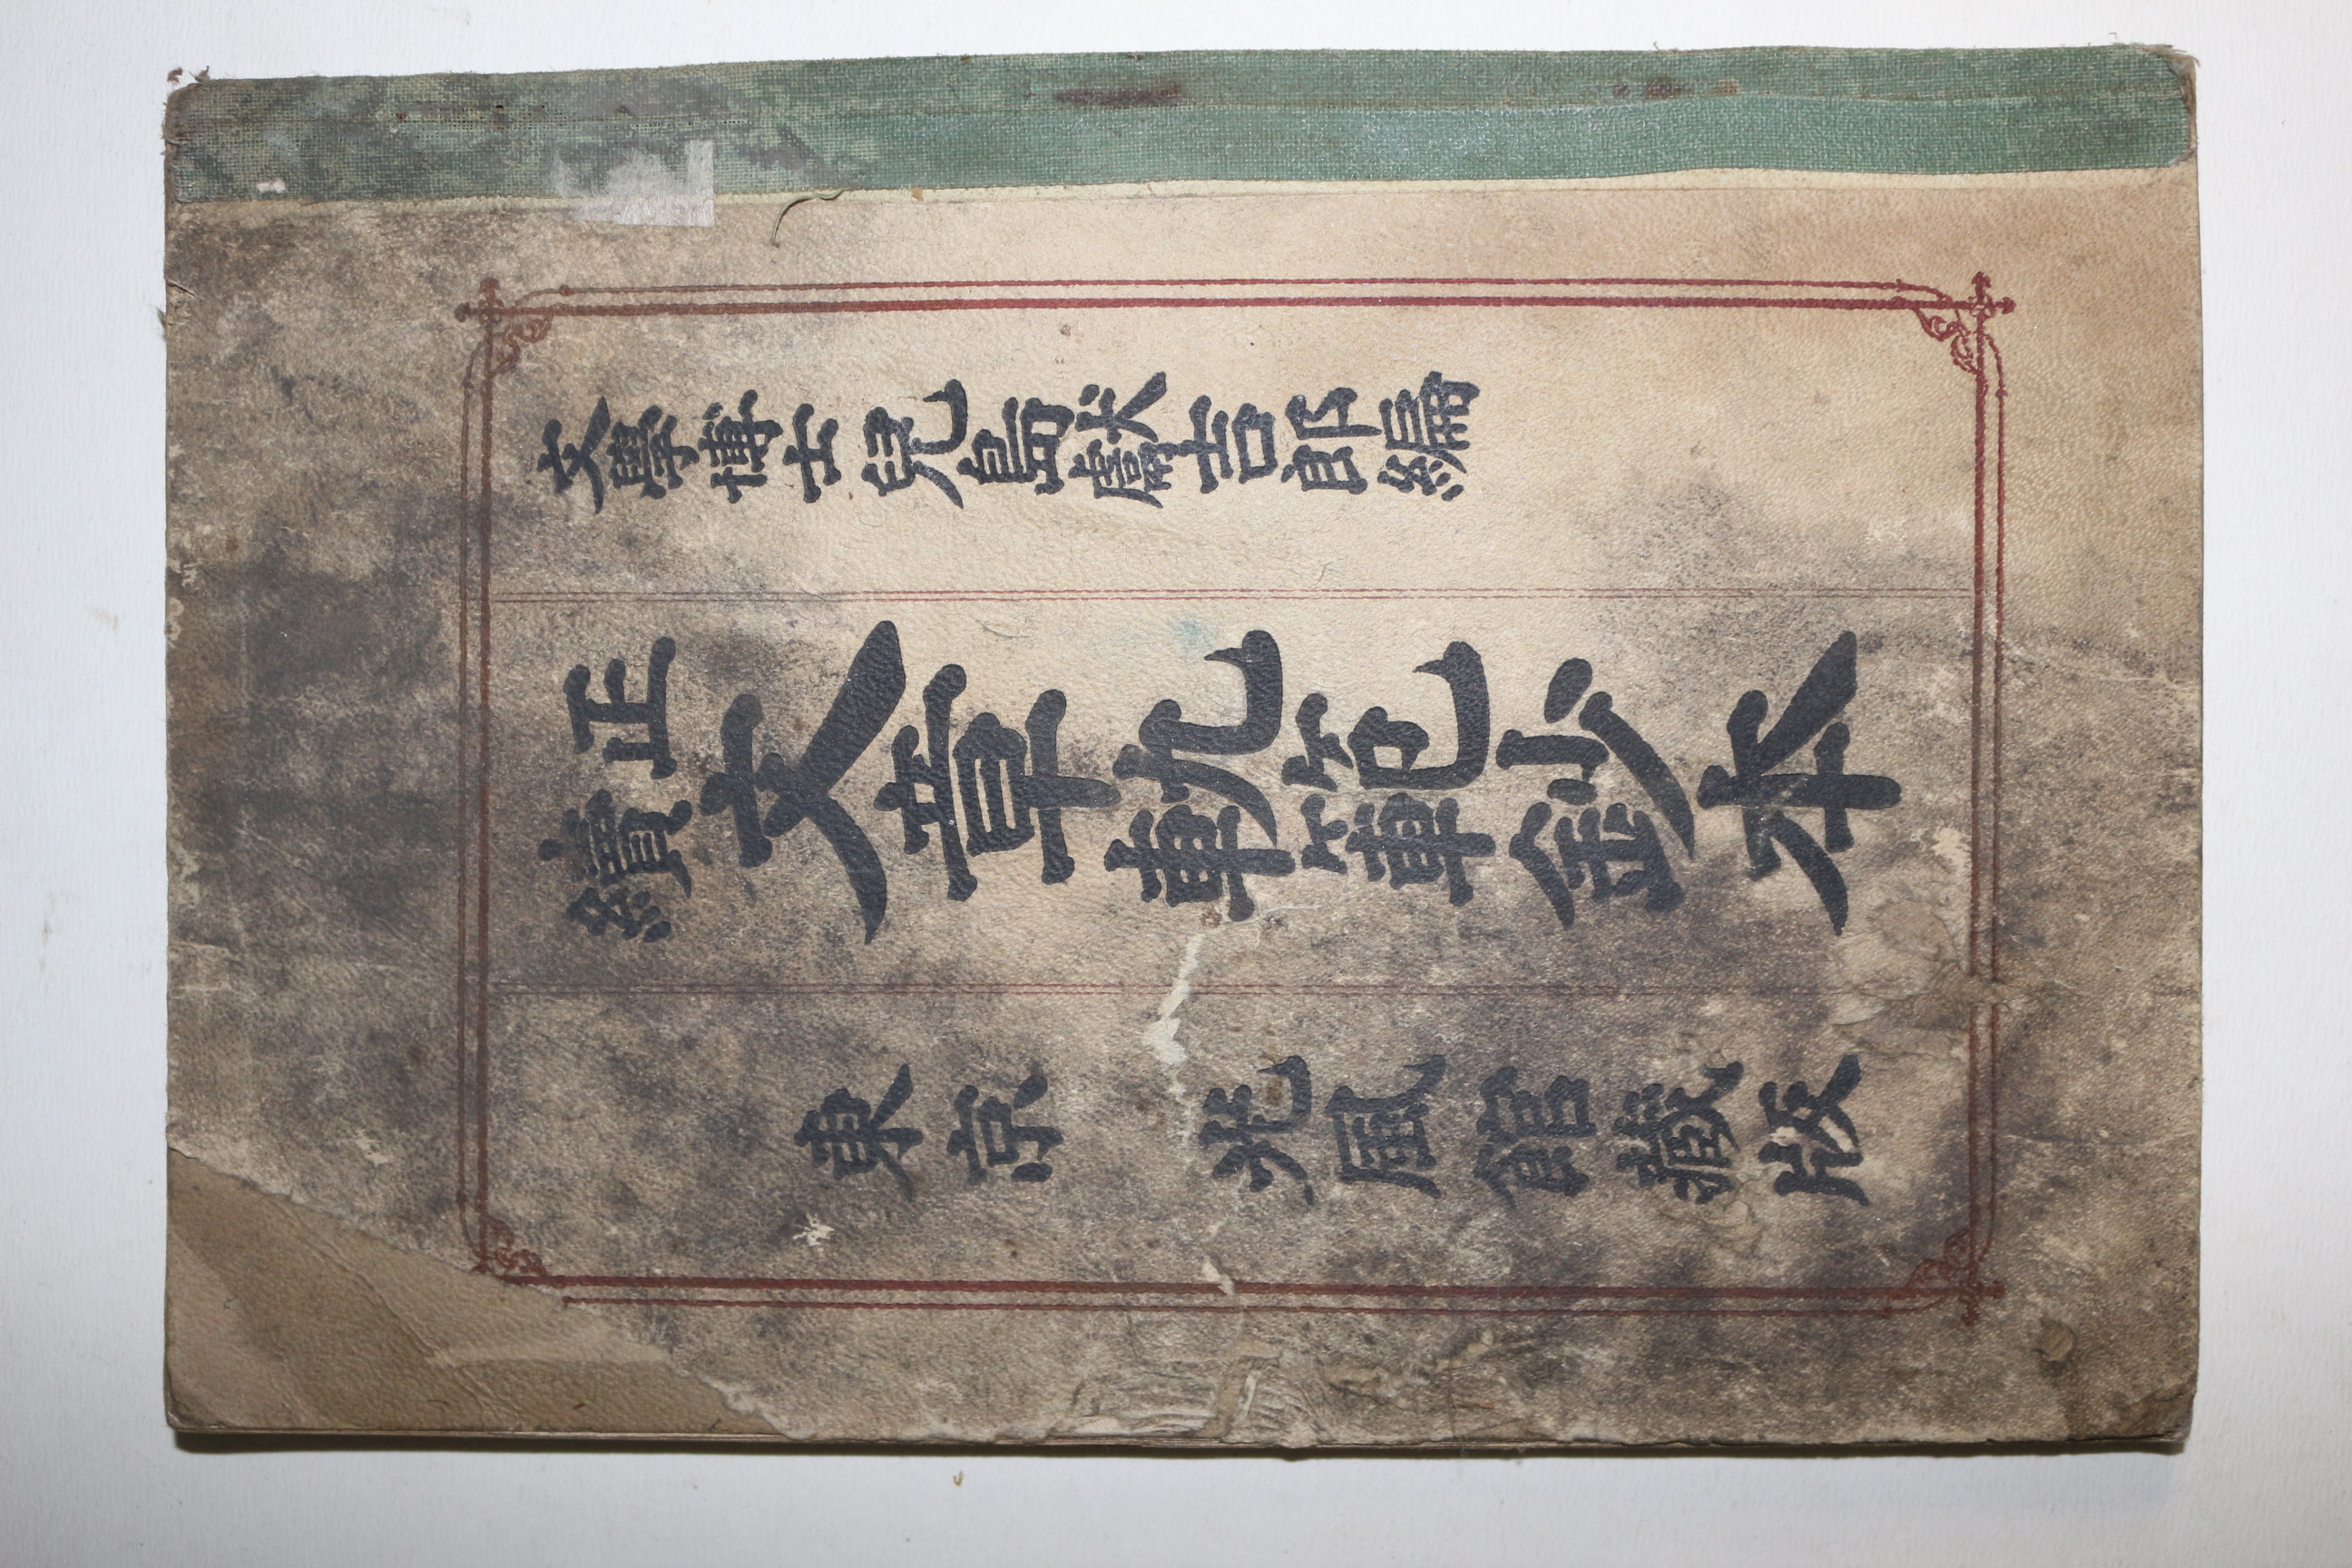 文學博士兒島獻吉郎編
正續文章軌範鈔本
東京 光風館藏版